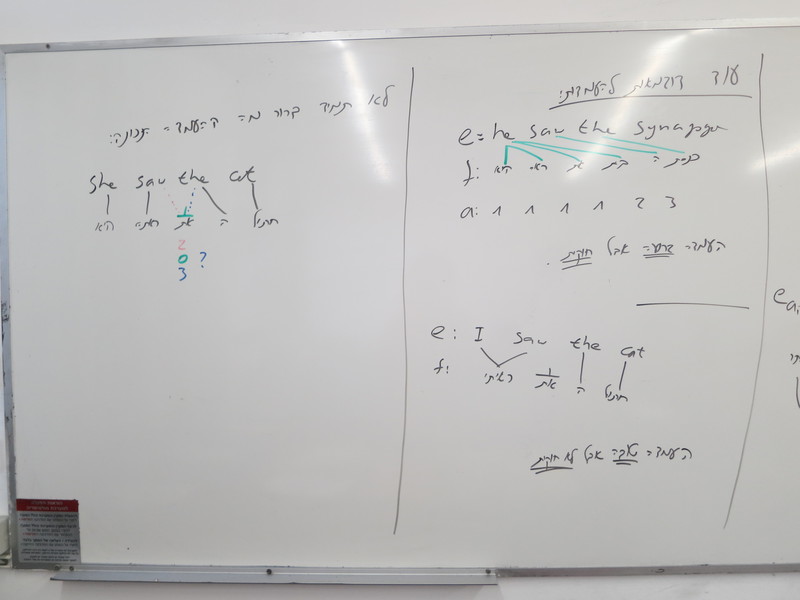 עוד דוגמאות להעמדות:
e = he saw the synagogue
f: הוא ראה את בית ה כנסת
a: 1 1 1 1 2 3
העמדה גרועה אבל חוקית.
e: I saw the cat
f: ראיתי את ה חתול
העמדה טובה אבל לא חוקית
לא תמיד ברור מה ההעמדה הנכונה:
she saw the cat
היא ראתה את ה חתול
2
0 ?
3
e a